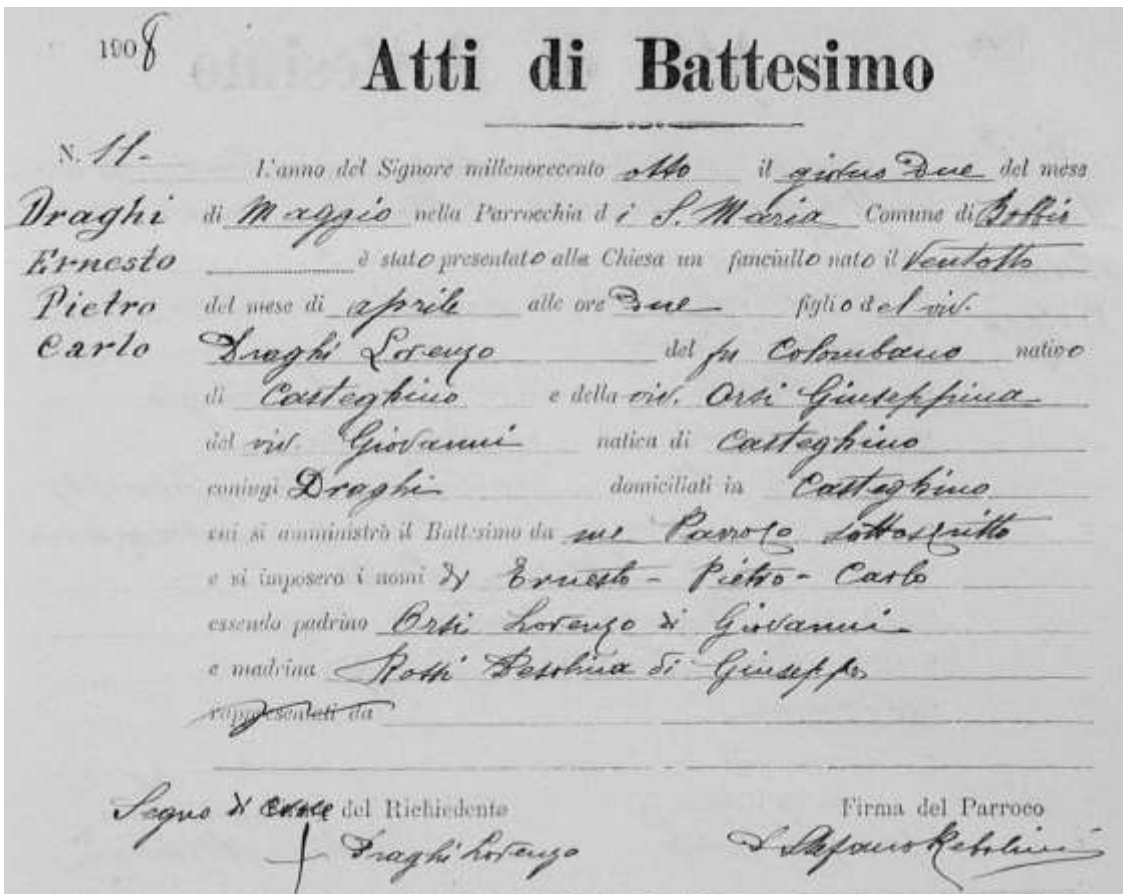 1908
Atti di Battesimo
N. 11-
L'anno del Signore millenovecento otto il giorno Due del mese
Draghi di Maggio nella Parrocchia di S. Maria Comune di Bobbio
Ernesto è stato presentato alla Chiesa un fanciullo nato il Ventotto
Pietro del mese di aprile alle ore Due figlio del viv.
Carlo Draghi Lorenzo del fu Colombano nativo
di Casteghino e della viv. Orsi Giuseppina
del viv. Giovanni nativa di Casteghino
coniugi Draghi domiciliati in Casteghino
cui si amministrò il Battesimo da me Parroco sottoscritto
e si imposero i nomi di Ernesto - Pietro - Carlo
essendo padrino Orsi Lorenzo di Giovanni
e madrina Rossi di Giuseppe
rappresentati da
Segno di Croce del Richiedente Firma del Parroco
Draghi Lorenzo D Stefano Rebolini